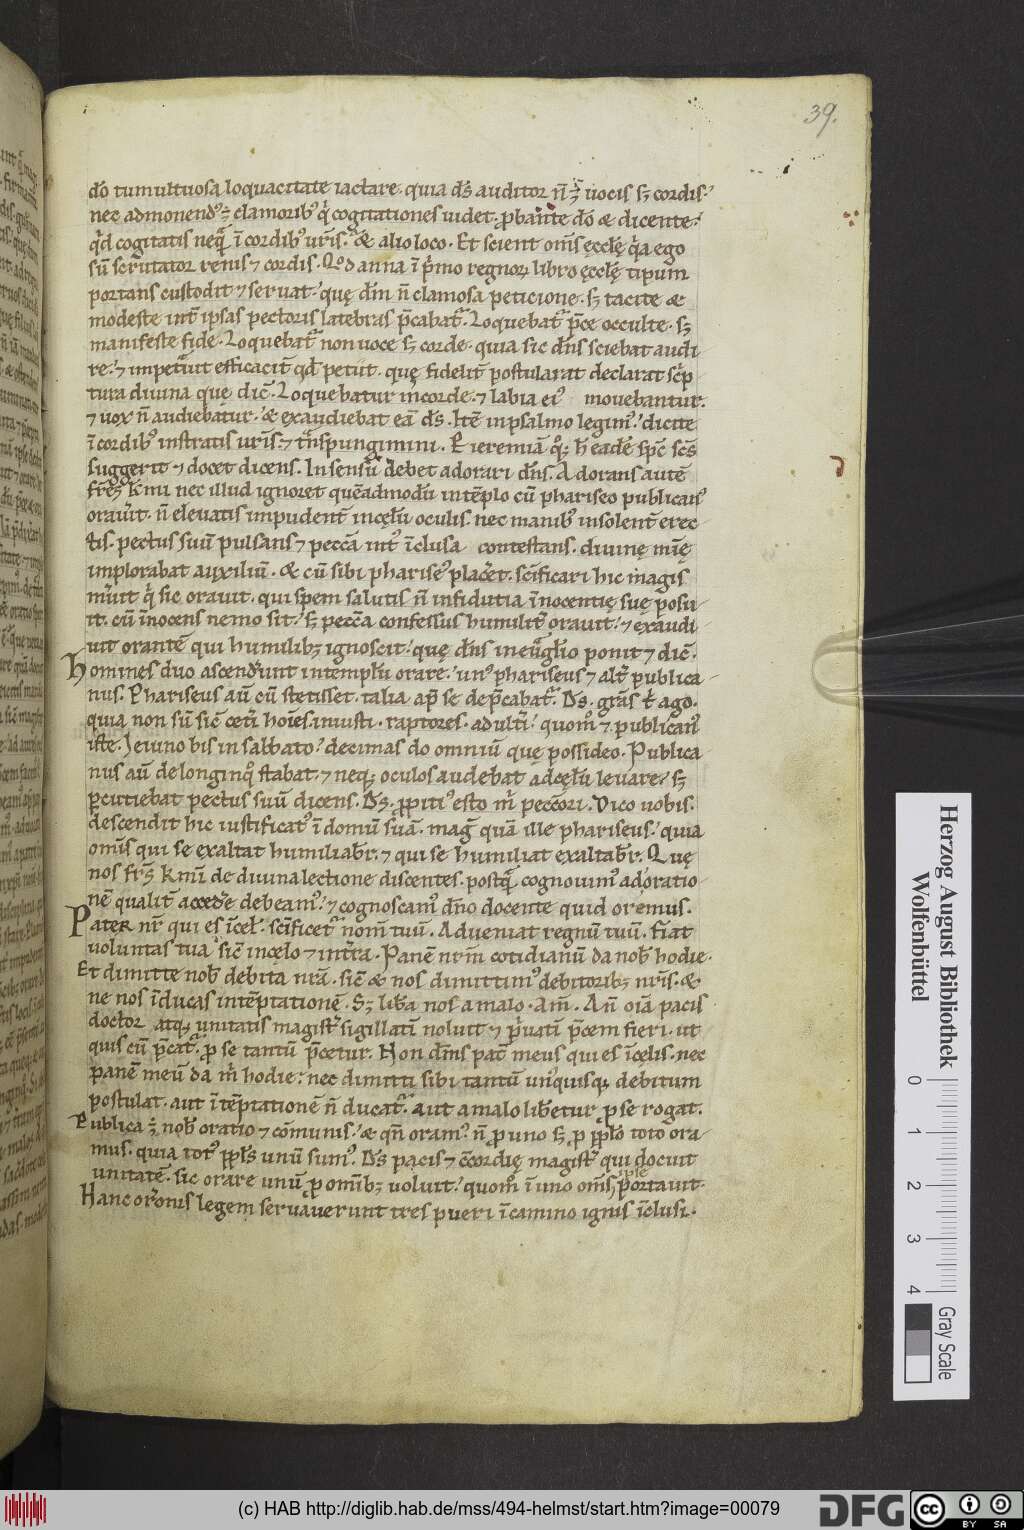 39.
dō tumultuosa loquacitate iactare. quia ds̄ auditor n̄ ē uocis sꝫ cordis.
nec admonendꝰ ē clamoribꝰ q̄ cogitationes uidet. ꝓbante dō & dicente.
qͥd cogitatis neqͣ ī cordibꝰ ur̄is. & alio loco. Et scient om̄s ęcclę̄ qͥa ego
sū scrutator renis ⁊ cordis. Qd̄ anna ī pͥmo regnoꝝ libro ęcclę̄ tipum
portans custodit ⁊ seruat. quę dm̄ n̄ clamosa peticione. sꝫ tacite &
modeste int̄ ipsas pectoris latebras p̄cabatͬ. Loquebatͬ p̄ce occulte. sꝫ
manifeste fide. Loquebatͬ non uoce sꝫ corde. quia sic dn̄s sciebat audi
re. ⁊ impetͣuit efficacit̄ qd̄ petiit. quę fidelit̄ postularat declarat scͥp
tura diuina quę dic̄. Loquebatur in corde. ⁊ labia eiꝰ mouebantur.
⁊ uox n̄ audiebatur. & exaudiebat eā ds̄. Itē in psalmo legimꝰ. dicite
ī cordibꝰ in stratis ur̄is. ⁊ tn̄spungimini. P ieremiā qͦꝫ h̄ eadē spc̄ sc̄s
suggerit ⁊ docet dicens. In sensū debet adorari dn̄s. Adorans autē
fr̄s kmi nec illud ignoret quēadmodū in tēplo cū phariseo publicanꝰ
orauͥt. n̄ eleuatis impudent̄ in cęlū oculis. nec manibꝰ insolent̄ erec
tis. pectus suū pulsans ⁊ pecc̄a intꝰ īclusa contestans. diuinę mīę
implorabat auxiliū. & cū sibi phariseꝰ placet̄. sc̄ificari hic magis
mͤruit qͥ sic orauit. qui spem salutis n̄ in fidutia īnocentię suę posu
it. cū inocens nemo sit. sꝫ pecc̄a confessus humilit̄ orauit. ⁊ exaudi
uit orantē qui humilibꝫ ignoscit. quę dn̄s in euͣglͥo ponit ⁊ dic̄.
Homines duo ascenderunt in templū orare. unꝰ phariseus ⁊ alt̄ publica
nus. Phariseus aū cū stetisset. talia ap̄ se dep̄cabatͬ. Ds̄. gr̄as t̄ ago.
quia non sū sic̄ cet̄i hoīes. iniusti. raptores. adult̄i. quomͦ ⁊ publicanꝰ
iste. Ieiuno bis in sabbato. decimas do omniū quę possideo. Publica
nus aū de longinqͦ stabat. ⁊ neqꝫ oculos audebat ad cęlū leuare. sꝫ
ꝑcutiebat pectus suū dicens. Ds̄. ꝓpitiꝰ esto m̄ pecc̄ori. Dico uobis.
descendit hic iustificatꝰ ī domū suā. maḡ quā ille phariseus. quia
om̄is qui se exaltat humiliabͬ. ⁊ qui se humiliat exaltabͬ. Quę
nos fr̄s kmī de diuina lectione discentes. postqͣ cognouimꝰ ad oratio
nē qualit̄ accedere debeamꝰ. ⁊ cognoscamꝰ dn̄o docente quid oremus.
Pater nr̄ qui es ī cel̄. sc̄ificetͬ nom̄ tuū. Adueniat regnū tuū. Fiat
uoluntas tua sic̄ in cęlo ⁊ in tr̄a. Panē nr̄m cotidianū da nob̄ hodie.
Et dimitte nob̄ debita nr̄a. sic̄ & nos dimittimꝰ debitoribꝫ nr̄is. &
ne nos īducas in tēptationē. Sꝫ lib̄a nos a malo. Am̄. An̄ oīa pacis
doctor atqꝫ unitatis magist̄ sigillatī noluit ⁊ pͥuatī p̄cem fieri. ut
quis cū p̄catͬ. ꝓ se tantū p̄cetur. Non dīm͂s pat̄ meus qui es ī cęlis. nec
panē meū da m̄ hodie. nec dimitti sibi tantū unꝰquisqꝫ debitum
postulat. aut ī tēptationē n̄ ducatͬ. aut a malo lib̄etur ꝓ se rogat.
Publica ē nob̄ oratio ⁊ cōmunis. & qn̄ oramꝰ. n̄ ꝓ uno sꝫ ꝓ pplͦo toto ora
mus. quia totꝰ ppls̄ unū sumꝰ. Ds̄ pacis ⁊ ↄcordię magist̄ qui docuit
unitatē. sic orare unū ꝓ omībꝫ uoluit. quomͦ ī uno om̄s ipse portauit.
Hanc orōnis legem seruauerunt tres pueri ī camino ignis īclusi.
Herzog August Bibliothek
Wolfenbüttel
0 1 2 3 4
Gray Scale
(c) HAB http://diglib.hab.de/mss/494-helmst/start.htm?image=00079
DFG
cc BY SA